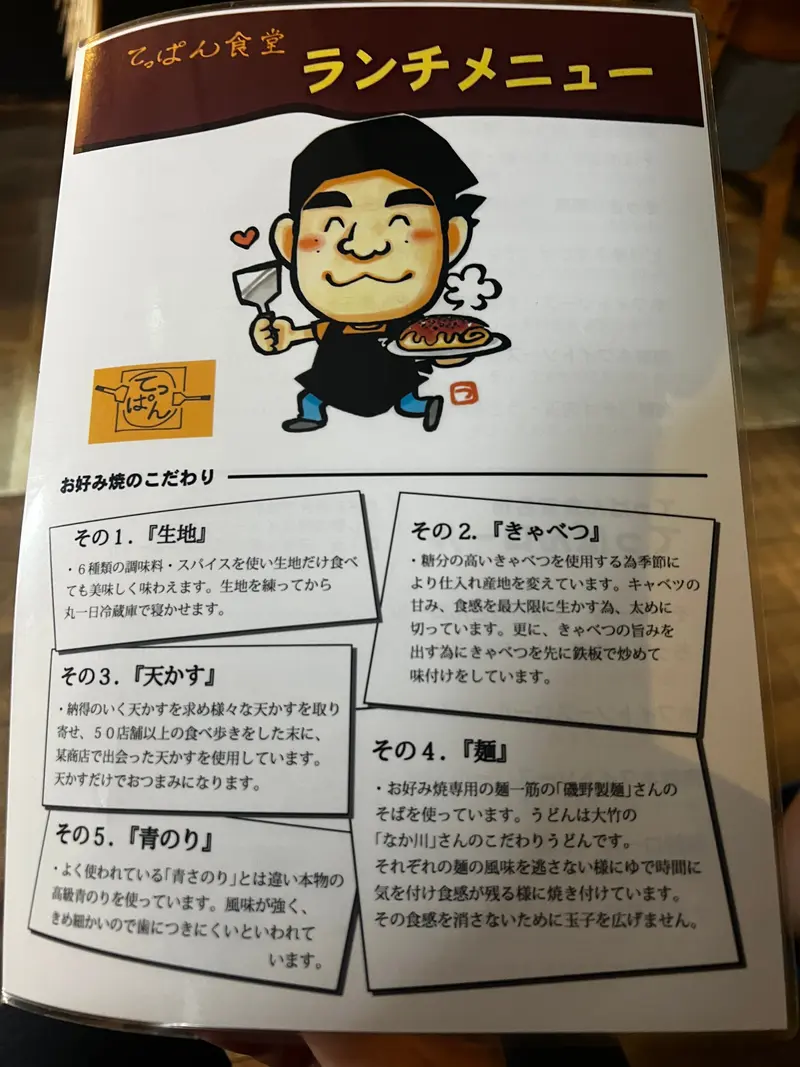 てっぱん食堂
ランチメニュー
う
てっ
ぱん
お好み焼のこだわり
その1.『生地』
・6種類の調味料・スパイスを使い生地だけ食べ
ても美味しく味わえます。生地を練ってから
丸一日冷蔵庫で寝かせます。
その2.『きゃべつ』
・糖分の高いきゃべつを使用する為季節に
より仕入れ産地を変えています。キャベツの
甘み、食感を最大限に生かす為、太めに
切っています。更に、きゃべつの旨みを
出す為にきゃべつを先に鉄板で炒めて
味付けをしています。
その3.『天かす』
・納得のいく天かすを求め様々な天かすを取り
寄せ、50店舗以上の食べ歩きをした末に、
某商店で出会った天かすを使用しています。
天かすだけでおつまみになります。
その4.『麺』
・お好み焼専用の麺一筋の「磯野製麺」さんの
そばを使っています。うどんは大竹の
「なか川」さんのこだわりうどんです。
それぞれの麺の風味を逃さない様にゆで時間に
気を付け食感が残る様に焼き付けています。
その食感を消さないために玉子を広げません。
その5.『青のり』
・よく使われている「青さのり」とは違い本物の
高級青のりを使っています。風味が強く、
きめ細かいので歯につきにくいといわれて
います。